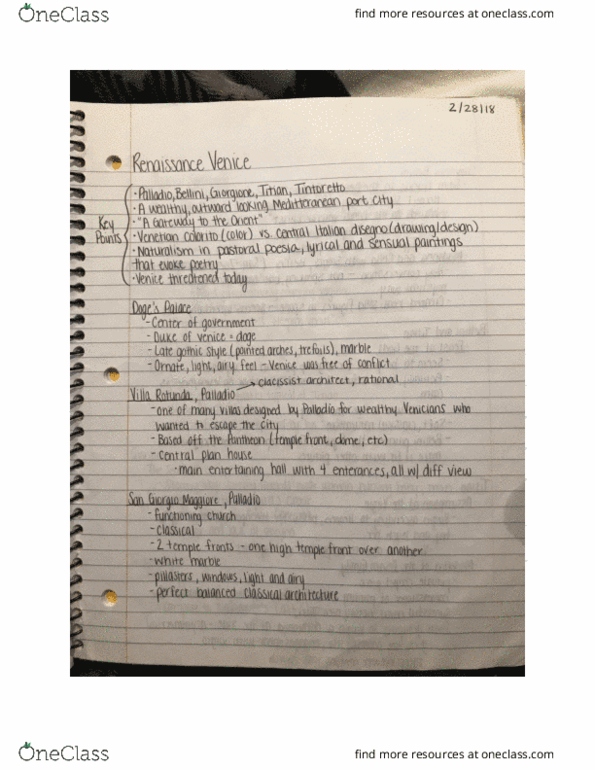 OneClass
find more resources at oneclass.com
2/28/18
Renaissance Venice
Key Points
· Palladio, Bellini, Giorgione, Titian, Tintoretto
· A wealthy, outward looking Meditteranean port city
· "A Gateway to the Orient"
· Venetian Colorito (color) vs. Central Italian disegno (drawing/design)
· Naturalism in pastoral poesia, lyrical and sensual paintings
that evoke poetry
· Venice threatened today
Doge's Palace
- Center of government
- Duke of Venice = doge
- Late gothic style (pointed arches, trefoils), marble
- Ornate, light, airy feel - Venice was free of conflict
Villa Rotunda, Palladio → clacissist architect, rational
- one of many villas designed by Palladio for wealthy Venicians who
wanted to escape the city
- Based off the Pantheon (temple front, dome, etc)
- central plan house
· main entertaining hall with 4 enterances, all w/ diff view
San Giorgio Maggiore, Palladio
- functioning church
- classical
- 2 temple fronts - one high temple front over another
- white marble
- pillasters, windows, light and airy
- perfect balanced classical architecture
OneClass
find more resources at oneclass.com